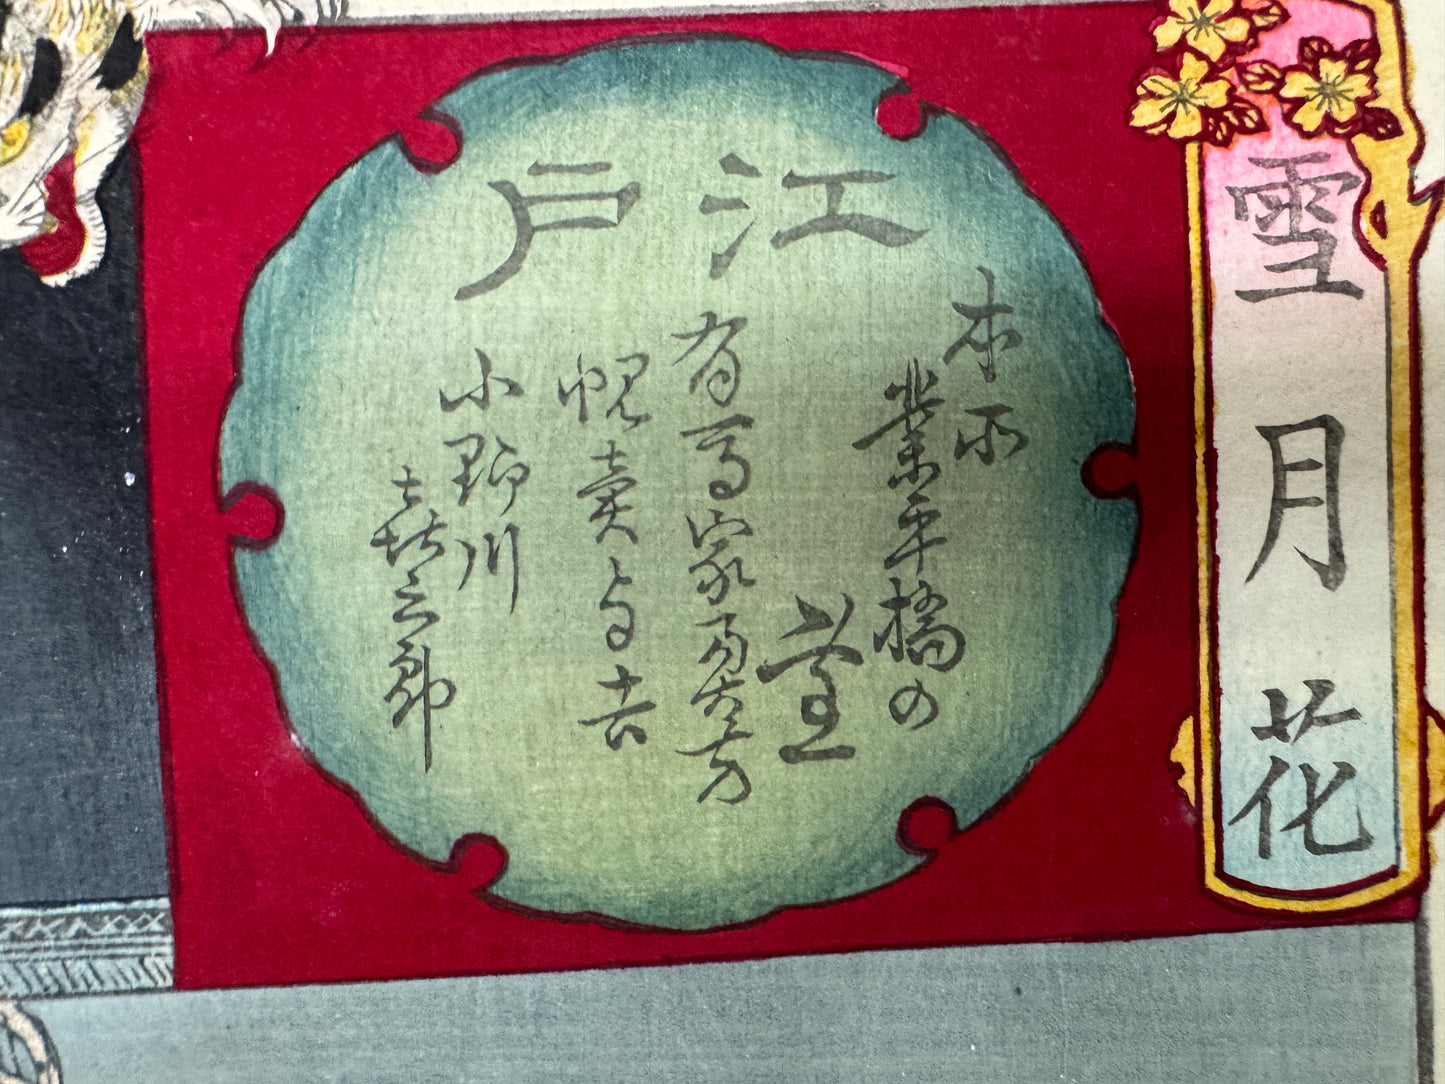 雪月花
江戸
本所
業平橋の
有馬家
幌賣与吉
小野川
喜三郎